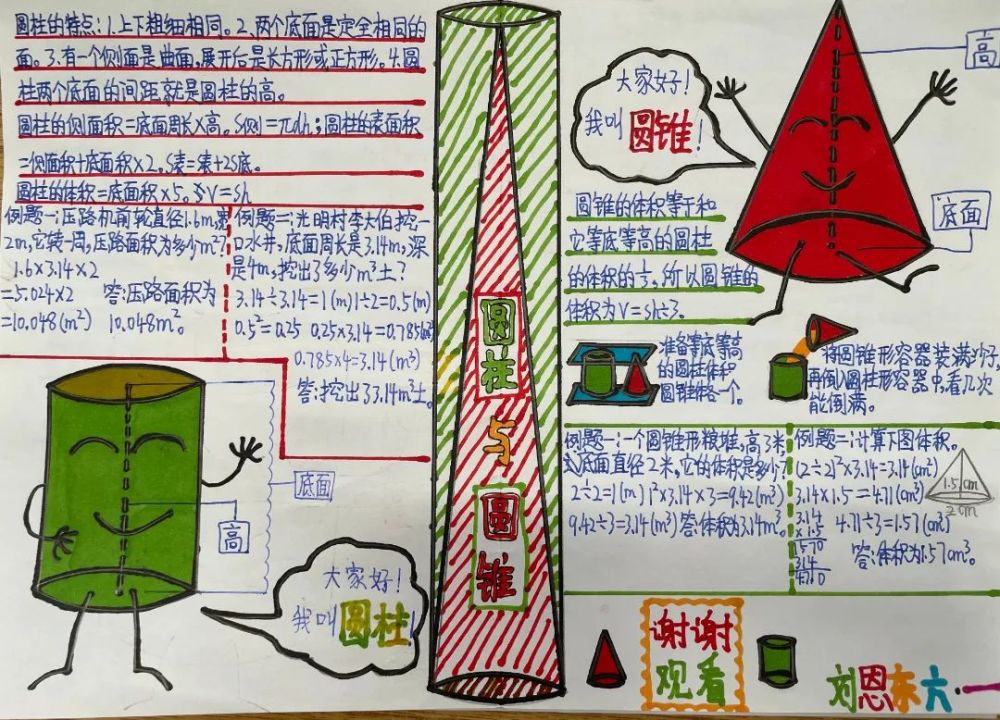 圆柱的特点:1.上下粗细相同。2.两个底面是完全相同的
面。3.有一个侧面是曲面,展开后是长方形或正方形。4.圆
柱两个底面的间距就是圆柱的高。
圆柱的侧面积=底面周长×高。S侧=πdh;圆柱的表面积
=侧面积+底面积×2。S表=表+2S底。
圆柱的体积=底面积×5。V=Sh
例题一:压路机前轮直径1.6m,宽
2m,它转一周,压路面积为多少m²?
1.6×3.14×2
=5.024×2 答:压路面积为
=10.048(m²) 10.048m²。
例题二:光明村李大伯挖一
口水井,底面周长是3.14m,深
是4m,挖出了多少m³土?
3.14÷3.14=1(m) 1÷2=0.5(m)
0.5²=0.25 0.25×3.14=0.785(m²)
0.785×4=3.14(m³)
答:挖出了3.14m³土。
底面
高
大家好!
我叫圆柱!
圆柱
与
圆锥
大家好!
我叫圆锥!
高
底面
圆锥的体积等于和
它等底等高的圆柱
的体积的⅓,所以圆锥的
体积为V=Sh÷3。
准备等底等高
的圆柱体积
圆锥体各一个。
将圆锥形容器装满沙子,
再倒入圆柱形容器中,看几次
能倒满。
例题一:一个圆锥形粮堆,高3米,
底面直径2米,它的体积是多少?
2÷2=1(m) 1²×3.14×3=9.42(m³)
9.42÷3=3.14(m³) 答:体积为3.14m³。
例题二:计算下图体积。
(2÷2)²×3.14=3.14(cm²)
3.14×1.5=4.71(cm³)
4.71÷3=1.57(cm³)
答:体积为1.57cm³。
3.14
×1.5
1570
314
4710
1.5cm
2cm
谢谢
观看
刘恩东 六·一